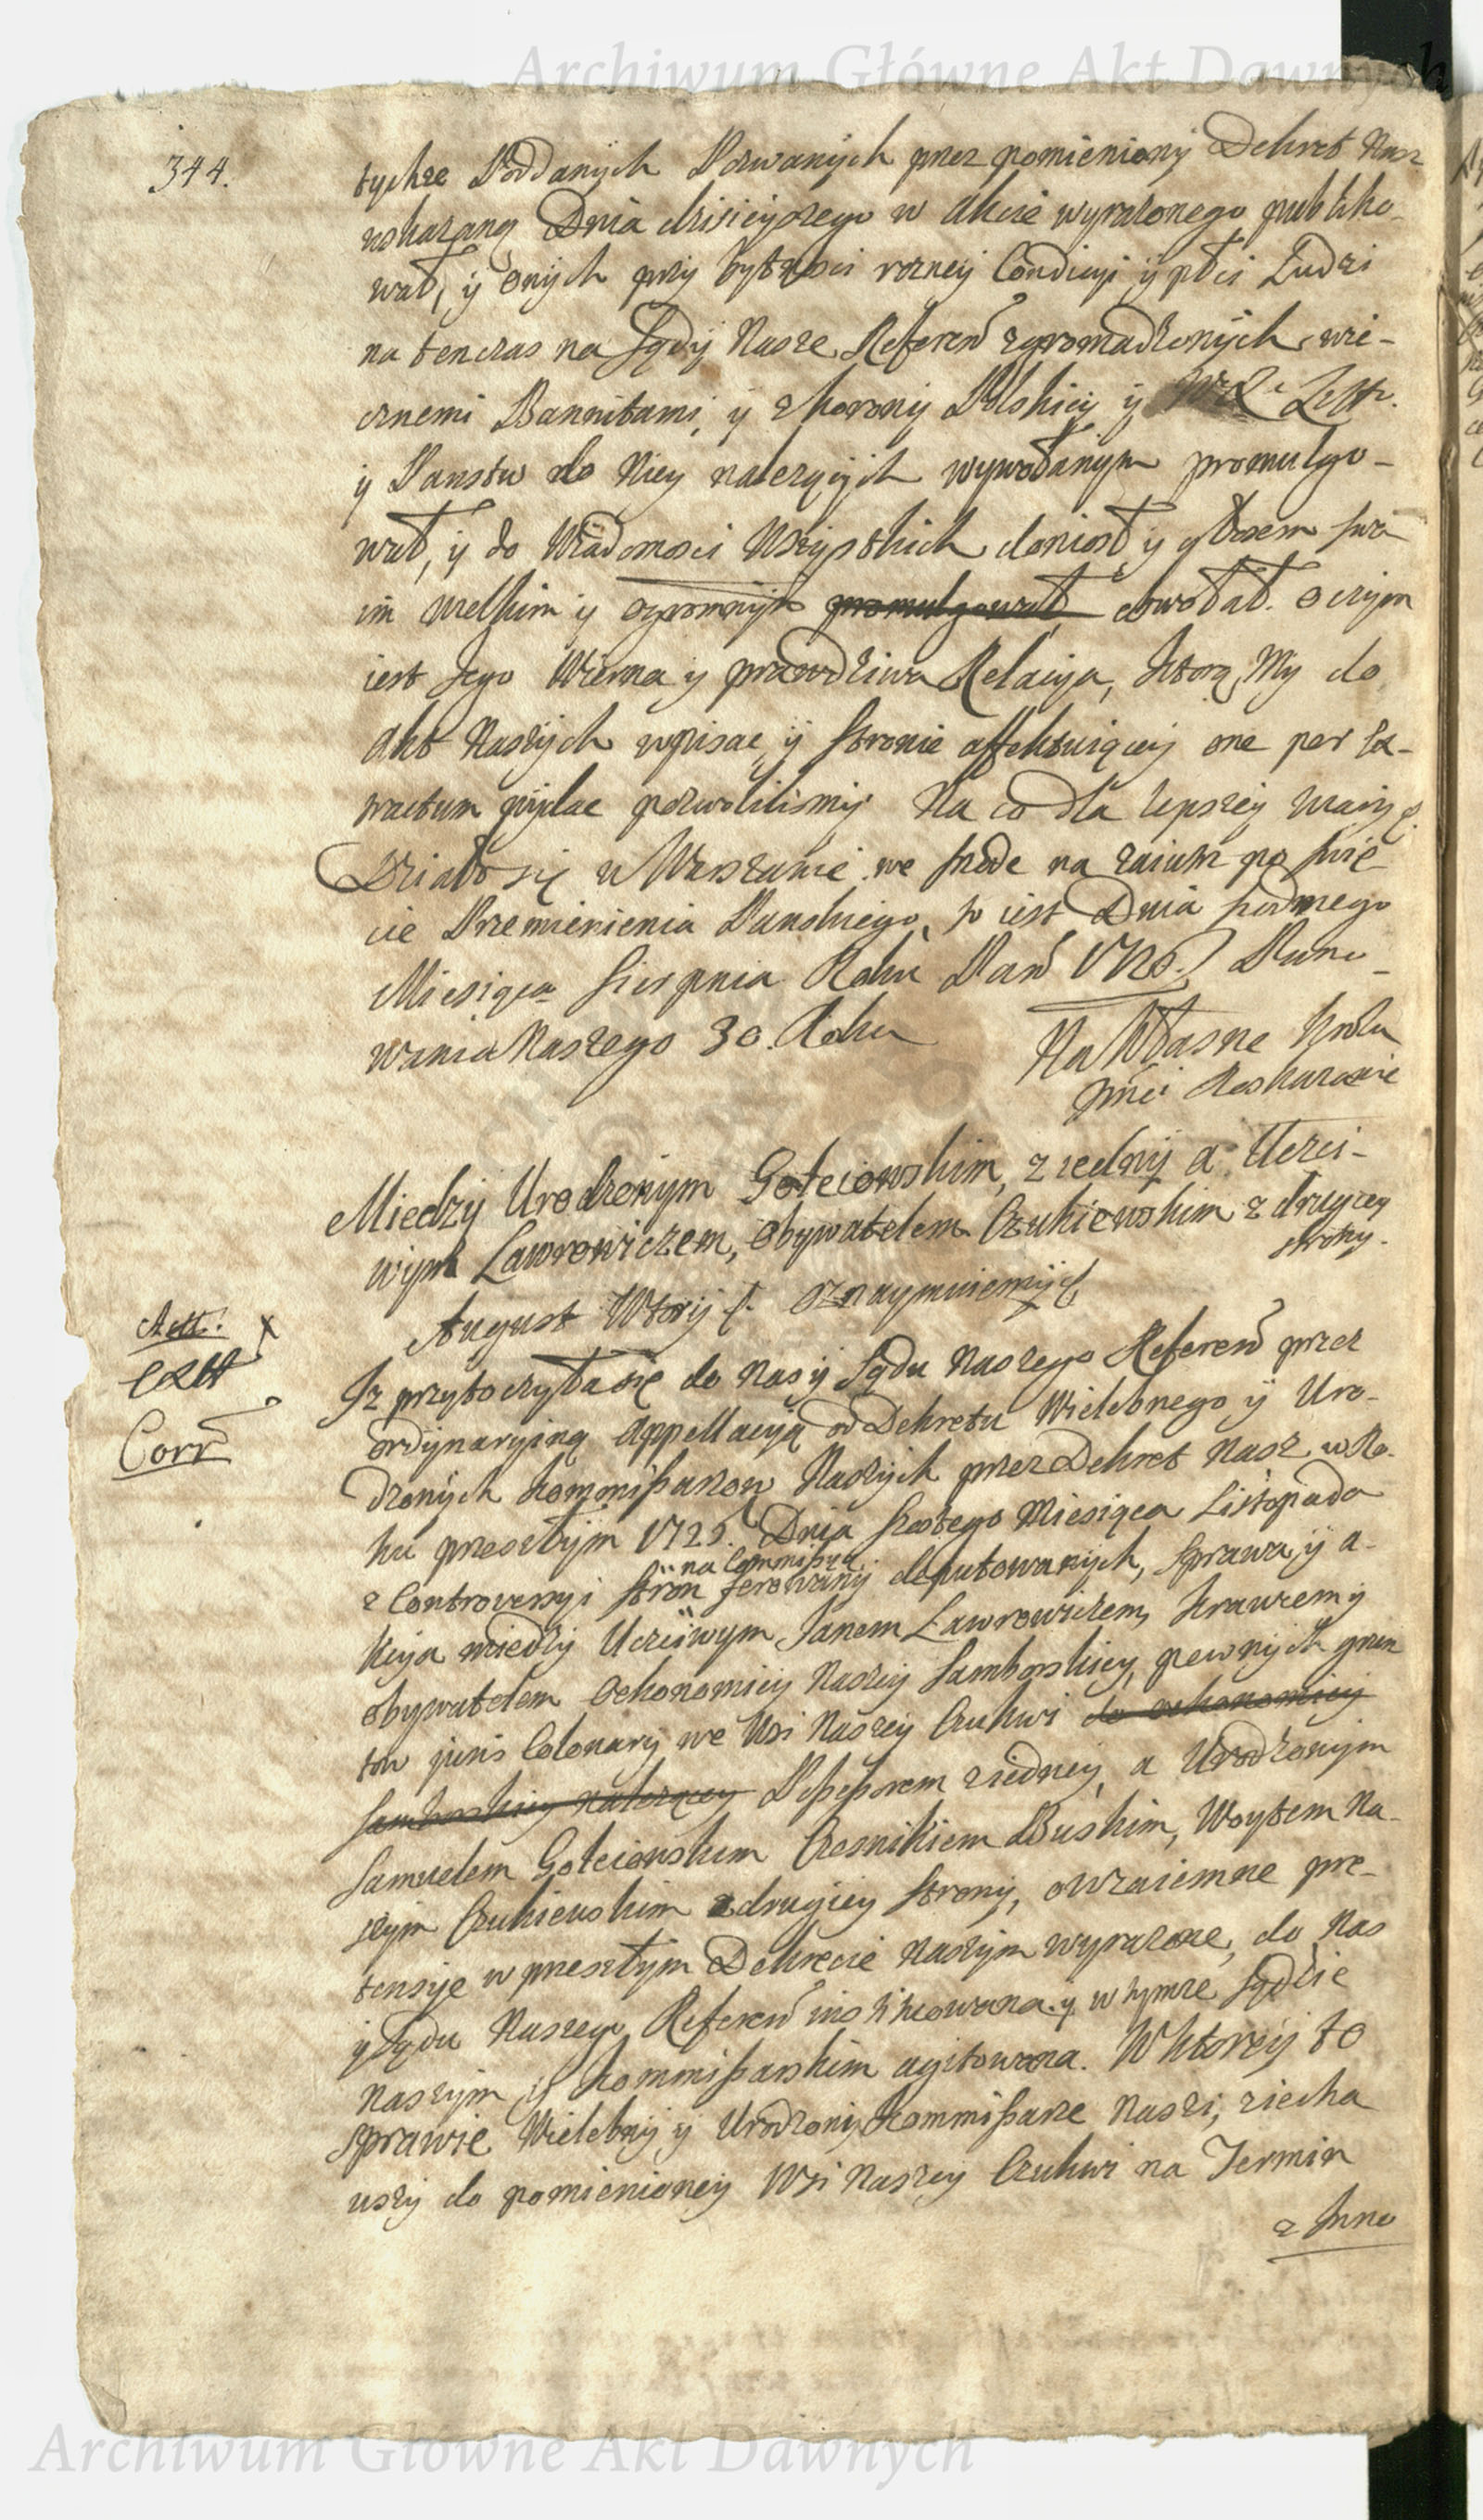 Archiwum Główne Akt Dawnych
344.
tychże Poddanych Pozwanych przez pomieniony Dekret Nasz
wskazaną Dnia dzisieyszego w Akcie wyrażonego publiko-
wał, y onych przy bytnosci rozney Condicyi y płci Ludzi
na tenczas na Sądy Nasze Referen zgromadzonych, wie-
cznemi Bannitami, y z Korony Polskiey y W. X. Litt.
y Panstw do Niey należących wywołanym promulgo-
wał, y do Wiadomosci Wszystkich doniosł y głosem swo-
im wielkim y ogromnym promulgował obwołał. o czym
iest Jego Wierna y prawdziwa Relacya, ktorą My do
Akt Naszych wpisac y Stronie affektuiącey one per Ex-
tractum wydac pozwolilismy. Na co dla lepszey wagi &.
Działo się w Warszawie we srzode na zaiutrz po Swię-
cie Przemienienia Panskiego, to iest Dnia siodmego
Miesiąca Sierpnia Roku Pan 1726. Pano-
wania Naszego 30. Roku
Na Własne Krola
Jmci Roskazanie
Miedzy Urodzonym Gołciowskim, z iedny a Uczci-
wym Lawrowiczem, Obywatelem Czukiewskim z drugiey
strony.
August Wtory &. Oznaymuiemy &
Actt. x
extt
Corr
Iz przytoczyła się do Nas y Sądu Naszego Referen przez
ordynaryiną Appellacyą od Dekretu Wielebnego y Uro-
dzonych Kommissarzow Naszych przez Dekret Nasz w Ro-
ku przeszłym 1725. Dnia szostego Miesiąca Listopada
na Commissyą
z Controwersyi stron ferowany deputowanych, Sprawa y a-
kcya miedzy Uczciwym Janem Lawrowiczem, Krawcem y
obywatelem Oekonomiey Naszey Samborskiey, pewnych grun
tow juris Colonary we Wsi Naszey Czukwi do oekonomiey
Samborskiey należącey Possessorem z iedney, a Urodzonym
Samuelem Gołciowskim Czesnikiem Buskim, Woytem Na-
szym Czukiewskim z drugiey strony, o wzaiemne pre-
tensye w przeszłym Dekrecie Naszym wyrażone, do Nas
y Sądu Naszego Referen instituowana y w tymze Sądzie
Naszym y Kommissarskim agitowana. W ktorey to
Sprawie Wielebny y Urodzony Kommissarze Naszi, ziecha
wszy do pomienioney Wsi Naszey Czukwi na Termin
z Inno
Archiwum Główne Akt Dawnych